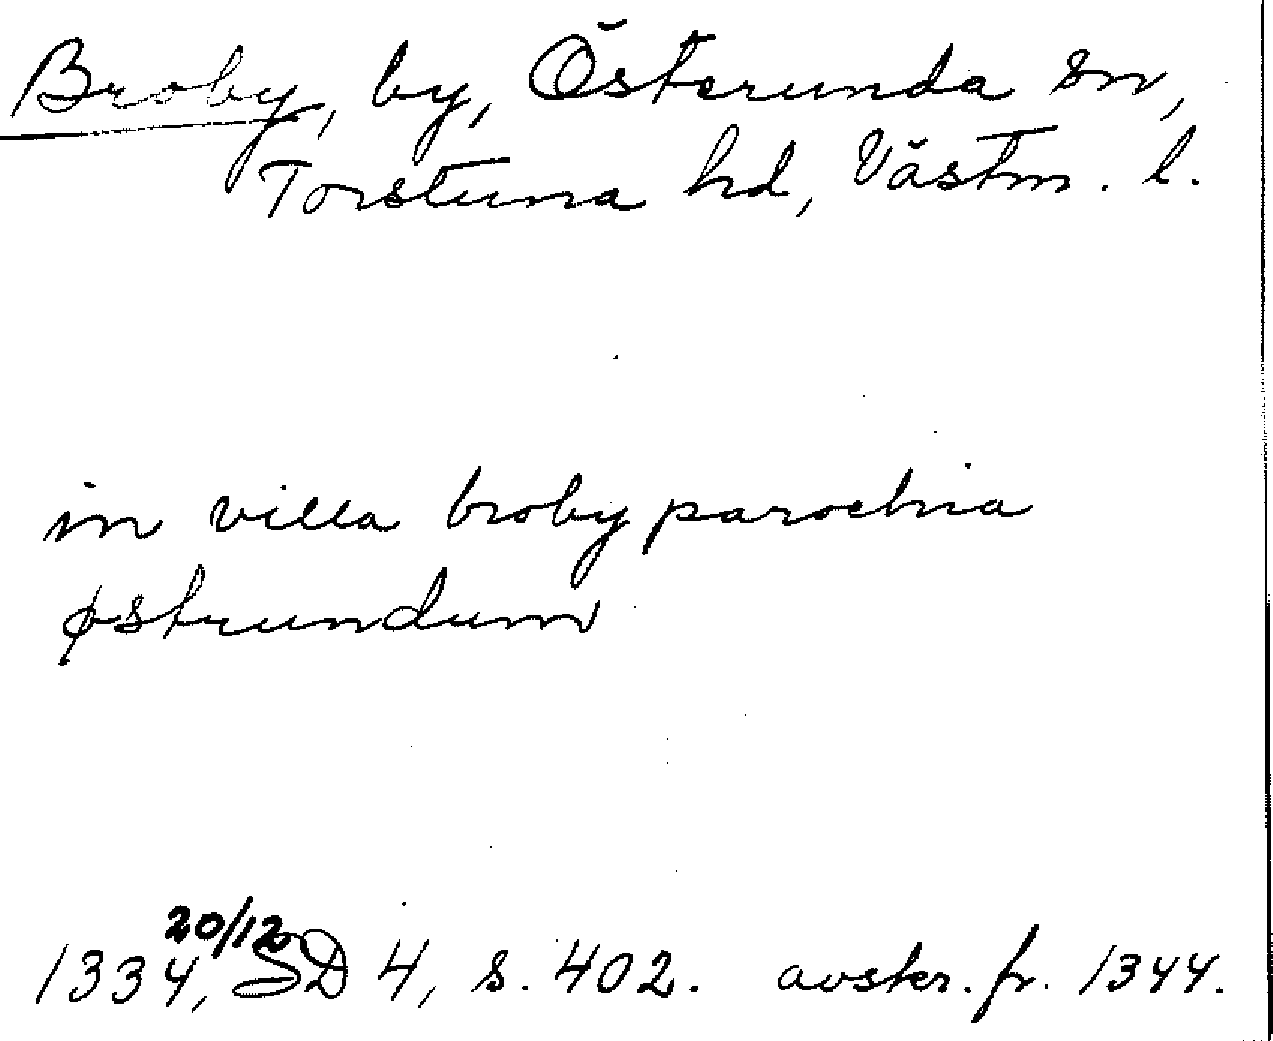 Broby, by, Österunda sn,
Torstuna hd, Västm. l.
in villa broby parochia
østrundum
20/12
1334, SD 4, s. 402. avskr. fr. 1344.